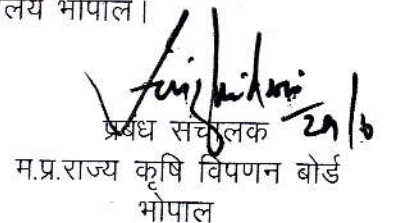 लय भोपाल।
प्रबंध संचालक 29/6
म.प्र.राज्य कृषि विपणन बोर्ड
भोपाल